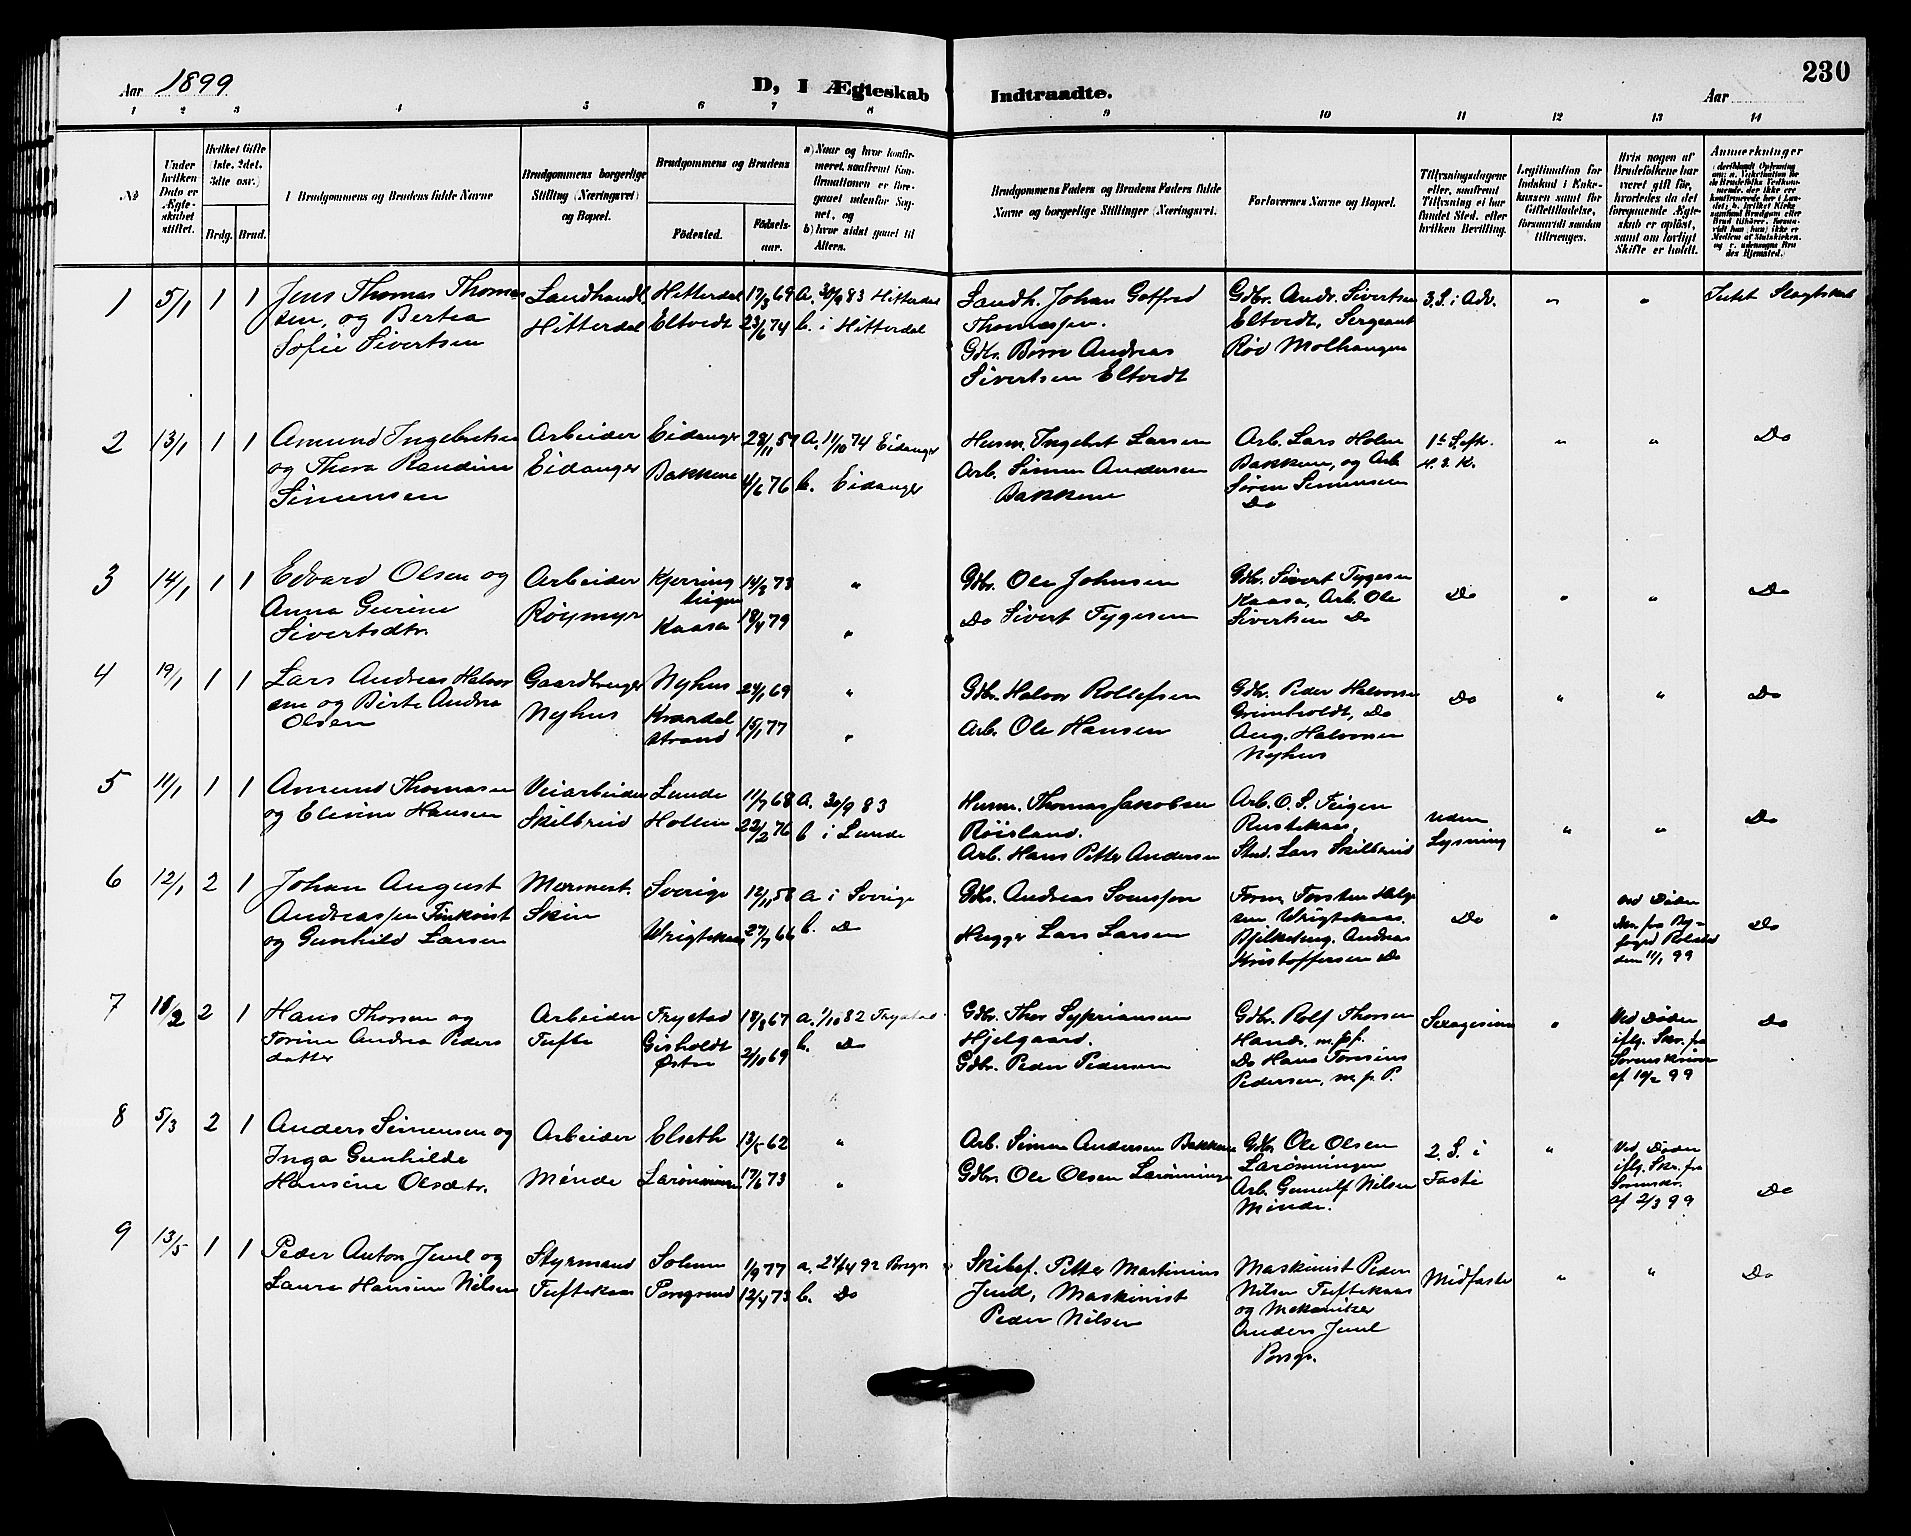 230
Aar 1899
D, I Ægteskab Indtraadte.
Aar
1 2 3 4 5 6 7 8 9 10 11 12 13 14
No
Under hvilken Dato er Ægteskabet stiftet.
Hvilket Gifte (1ste. 2det. 3die osv.)
Brdg. Brud.
Brudgommens og Brudens fulde Navne
Brudgommens borgerlige Stilling (Næringsvei) og Bopæl.
Brudgommens og Brudens
Fødested.
Fødselsaar.
a) Naar og hvor konfirmeret, saafremt Konfirmationen er foregaaet udenfor Sognet, og
b) hvor sidst gaaet til Alters.
Brudgommens Faders og Brudens Faders fulde Navne og borgerlige Stillinger (Næringsvei).
Forlovernes Navne og Bopæl.
Tillysningsdagene eller, saafremt Tillysning ei har fundet Sted, efter hvilken Bevilling.
Legitimation for Indskud i Enkekassen samt for Giftetilladelse, forsaavidt saadan tiltrænges.
Hvis nogen af Brudefolkene har været gift før, hvorledes da det foregaaende Ægteskab er opløst, samt om lovligt Skifte er holdt.
Anmerkninger
1 5/1 1 1
Jens Thomas Thomas
sen, og Bertea
Sofie Sivertsen
Landhandl.
Hitterdal
Hitterdal 17/3 69
Eltvedt 23/6 74
a. 30/9 83 Hitterdal
b. i Hitterdal
Landh. Johan Gotfred
Thomassen.
Gdbr. Børre Andreas
Sivertsen Eltvedt
Gdbr. Andr. Sivertsen
Eltvedt, Sergeant
Røv Molhaugen
3. S. i Adv.
" "
Ikke Slægtskab
2 13/1 1 1
Amund Ingebretsen
og Thora Randine
Simensen
Arbeider
Eidanger
Eidanger 28/11 57
Bakkene 4/6 76
a. 11/10 74 Eidanger
b. Eidanger
Husm. Ingebret Larsen
Arb. Simen Andersen
Bakkene
Arb. Lars Holm
Bakkene, og Arb
Søren Simensen
Do
1ste S. eft.
H. 3. K.
" "
Do
3 14/1 1 1
Edvard Olsen og
Anna Gurine
Sivertsdtr.
Arbeider
Røymyr
Kjerring
teigen 14/3 73
Kaasa 18/4 79
"
"
Gdbr. Ole Johnsen
Do Sivert Tygesen
Gdb. Sivert Tygesen
Kaasa, Arb. Ole
Sivertsen Do
Do
" "
Do
4 19/1 1 1
Lars Andreas Halvor
sen og Birte Andrea
Olsen
Gaardbruger
Nyhus
Nyhus 24/1 69
Kraakdal
strand 15/1 77
"
"
Gdbr. Halvor Rollefsen
Arb. Ole Hansen
Gdbr. Peder Halvorsen
Grimholdt, Do
Aug. Halvorsen
Nyhus
Do
" "
Do
5 11/1 1 1
Amund Thomassen
og Elevine Hansen
Veiarbeider
Skilbreid
Lunde 11/7 68
Hollen 22/2 76
a. 30/9 83
b i Lunde
Husm. Thomas Jakobsen
Røisland.
Arb. Hans Petter Andersen
Arb. O. S. Teigen
Rustekaas,
Stud. Lars Skilbreid
Uden
Lysning
" "
Do
6 12/1 2 1
Johan August
Andreassen Finkvist
og Gunhild Larsen
Murmest.
Skien
Sverige 12/11 58
Vrigtekaas 27/7 66
a i Sverige
b. Do
Gdbr. Andreas Svensson
Hugger Lars Larsen
Form. Torsten Helge
sen Vrigtekaas.
Andreas
Kristoffersen Do
Do
"
ved Døden
Skr. fra By-
foged
den 11/1 99
Do
7 18/2 2 1
Hans Thorsen og
Torine Andrea Peders
datter
Arbeider
Tufte
Trystad 18/8 67
Gisholdt
Østre 2/10 69
a. 1/10 82 Trystad
b. Do
Gdbr. Thor Sypriansen
Hjelgaard.
Gdbr. Peder Pedersen
Gdbr. Rolf Thorsen
Haner, m.p.p.
Do Hans Torsines
Pedersen, m. p. P.
Sexagesima
"
Ved Døden
iflg. Skr. fra
Sorenskriver
af 10/2 99
Do
8 5/3 2 1
Anders Simensen og
Inga Gunhilde
Hansine Olsdtr.
Arbeider
Mende
Elseth 13/5 62
Larønningen 17/6 73
"
"
Arb. Simen Andersen Bakkene
Gdbr. Ole Olsen Larønningen
Gdbr. Ole Olsen
Larønningen
Arb. Gunulf Nilsen
Minde.
2. S. i
Faste
"
Ved Døden
iflg. Skr. fra
Sorenskr.
af 2/3 99
Do
9 13/5 1 1
Peder Anton Juul og
Laura Hansine Nilsen
Styrmand
Tuftekaas
Solum 1/9 77
Porsgrund 12/4 73
a. 24/4 92 Porsgr
b. Do
Skibsf. Petter Martinius
Juul, Maskinist
Peder Nilsen
Maskinist Peder
Nilsen Tuftekaas
og Mekaniker
Anders Juul
Porsgr.
Midfaste
" "
Do